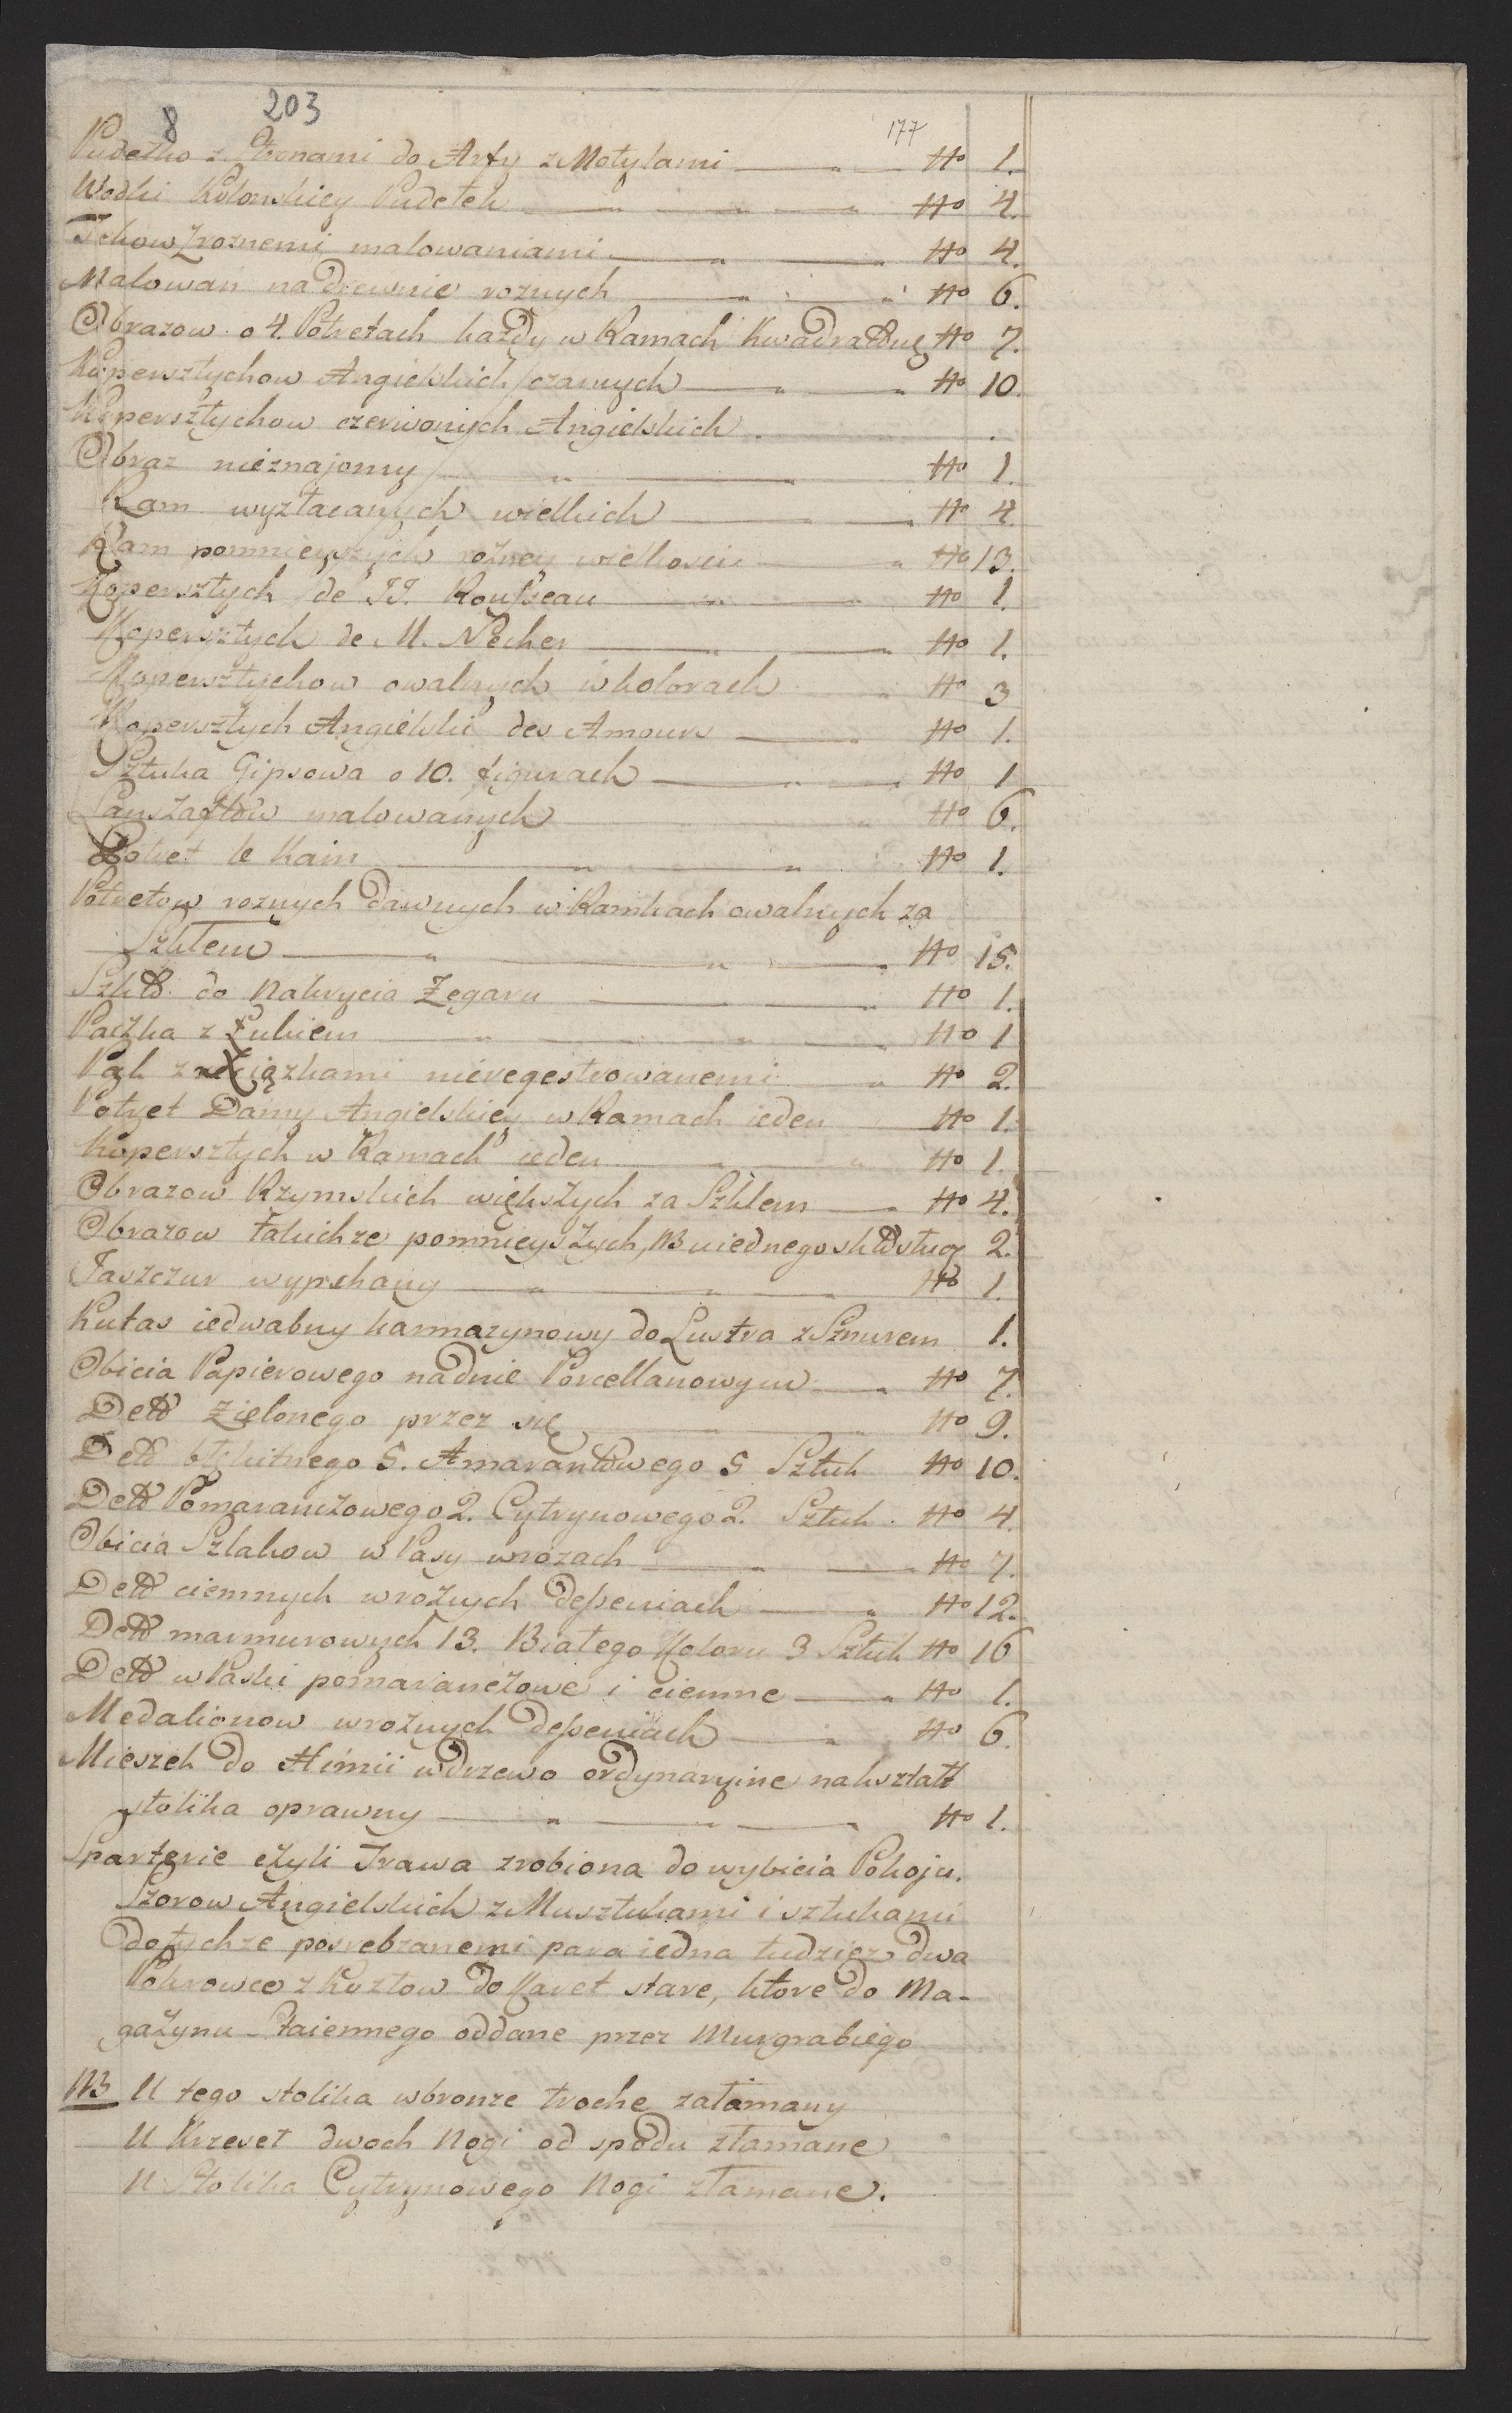 8 203
177
Pudełko z Stronami do Arfy z Motylami No 1.
Wodki Kolonskiey Pudełek No 4.
Tekow z roznemi malowaniami No 4.
Malowań na Drewnie roznych No 6.
Obrazow o 4. Potretach każdy w Ramach Kwadratowych No 7.
Kopersztychow Angielskich czarnych No 10.
Kopersztychow czerwonych Angielskich
Obraz nieznajomy No 1.
Ram wyzłacanych wielkich No 4.
Ram pomnieyszych rożney wielkosci No 13.
Kopersztych de JJ. Rousseau No 1.
Kopersztych de M. Necker No 1.
Kopersztychow owalnych w kolorach No 3
Kopersztych Angielski des Amours No 1.
Sztuka Gipsowa o 10. figurach No 1
Lanszaftow malowanych No 6.
Potret le Kain No 1.
Potretow roznych Dawnych w Ramkach owalnych za
Szkłem No 15.
Szkło do Nakrycia Zegaru No 1.
Paczka z Łubiem No 1
Pak z Xiążkami nieregestrowanemi No 2.
Potret Damy Angielskiey w Ramach ieden No 1.
Kopersztych w Ramach ieden No 1.
Obrazow Rzymskich większych za Szkłem No 4.
Obrazow takichze pomnieyszych, NB u iednego skło stłucz 2.
Jaszczur wypchany No 1.
Kutas iedwabny karmazynowy do Lustra z Sznurem 1.
Obicia Papierowego na dnie Porcellanowym No 7.
Detto Zielonego przez się No 9.
Detto błękitnego 5. Amarantowego 5 Sztuk No 10.
Detto Pomaranczowego 2. Cytrynowego 2. Sztuk No 4.
Obicia Szlakow w Pasy w rozach No 7.
Detto ciemnych w rożnych Deseniach No 12.
Detto marmurowych 13. Białego Koloru 3 Sztuk No 16
Detto w Paski pomaranczowe i ciemne No 1.
Medalionow w rożnych Deseniach No 6.
Mieszek do Himii w drzewo ordynaryine na kształt
stolika oprawny No 1.
Sparterie czyli Trawa zrobiona do wybicia Pokoju.
Szorow Angielskich z Musztukami i sztukami
do tychze posrebrzanemi para iedna tudziez dwa
Pokrowce z Kuztow do Karet stare, ktore do Ma-
gazynu Staiennego oddane przez Murgrabiego
NB U tego stolika w bronze troche załamany
U Krzeseł dwoch Nogi od spodu złamane
U Stolika Cytrynowego Nogi złamane.